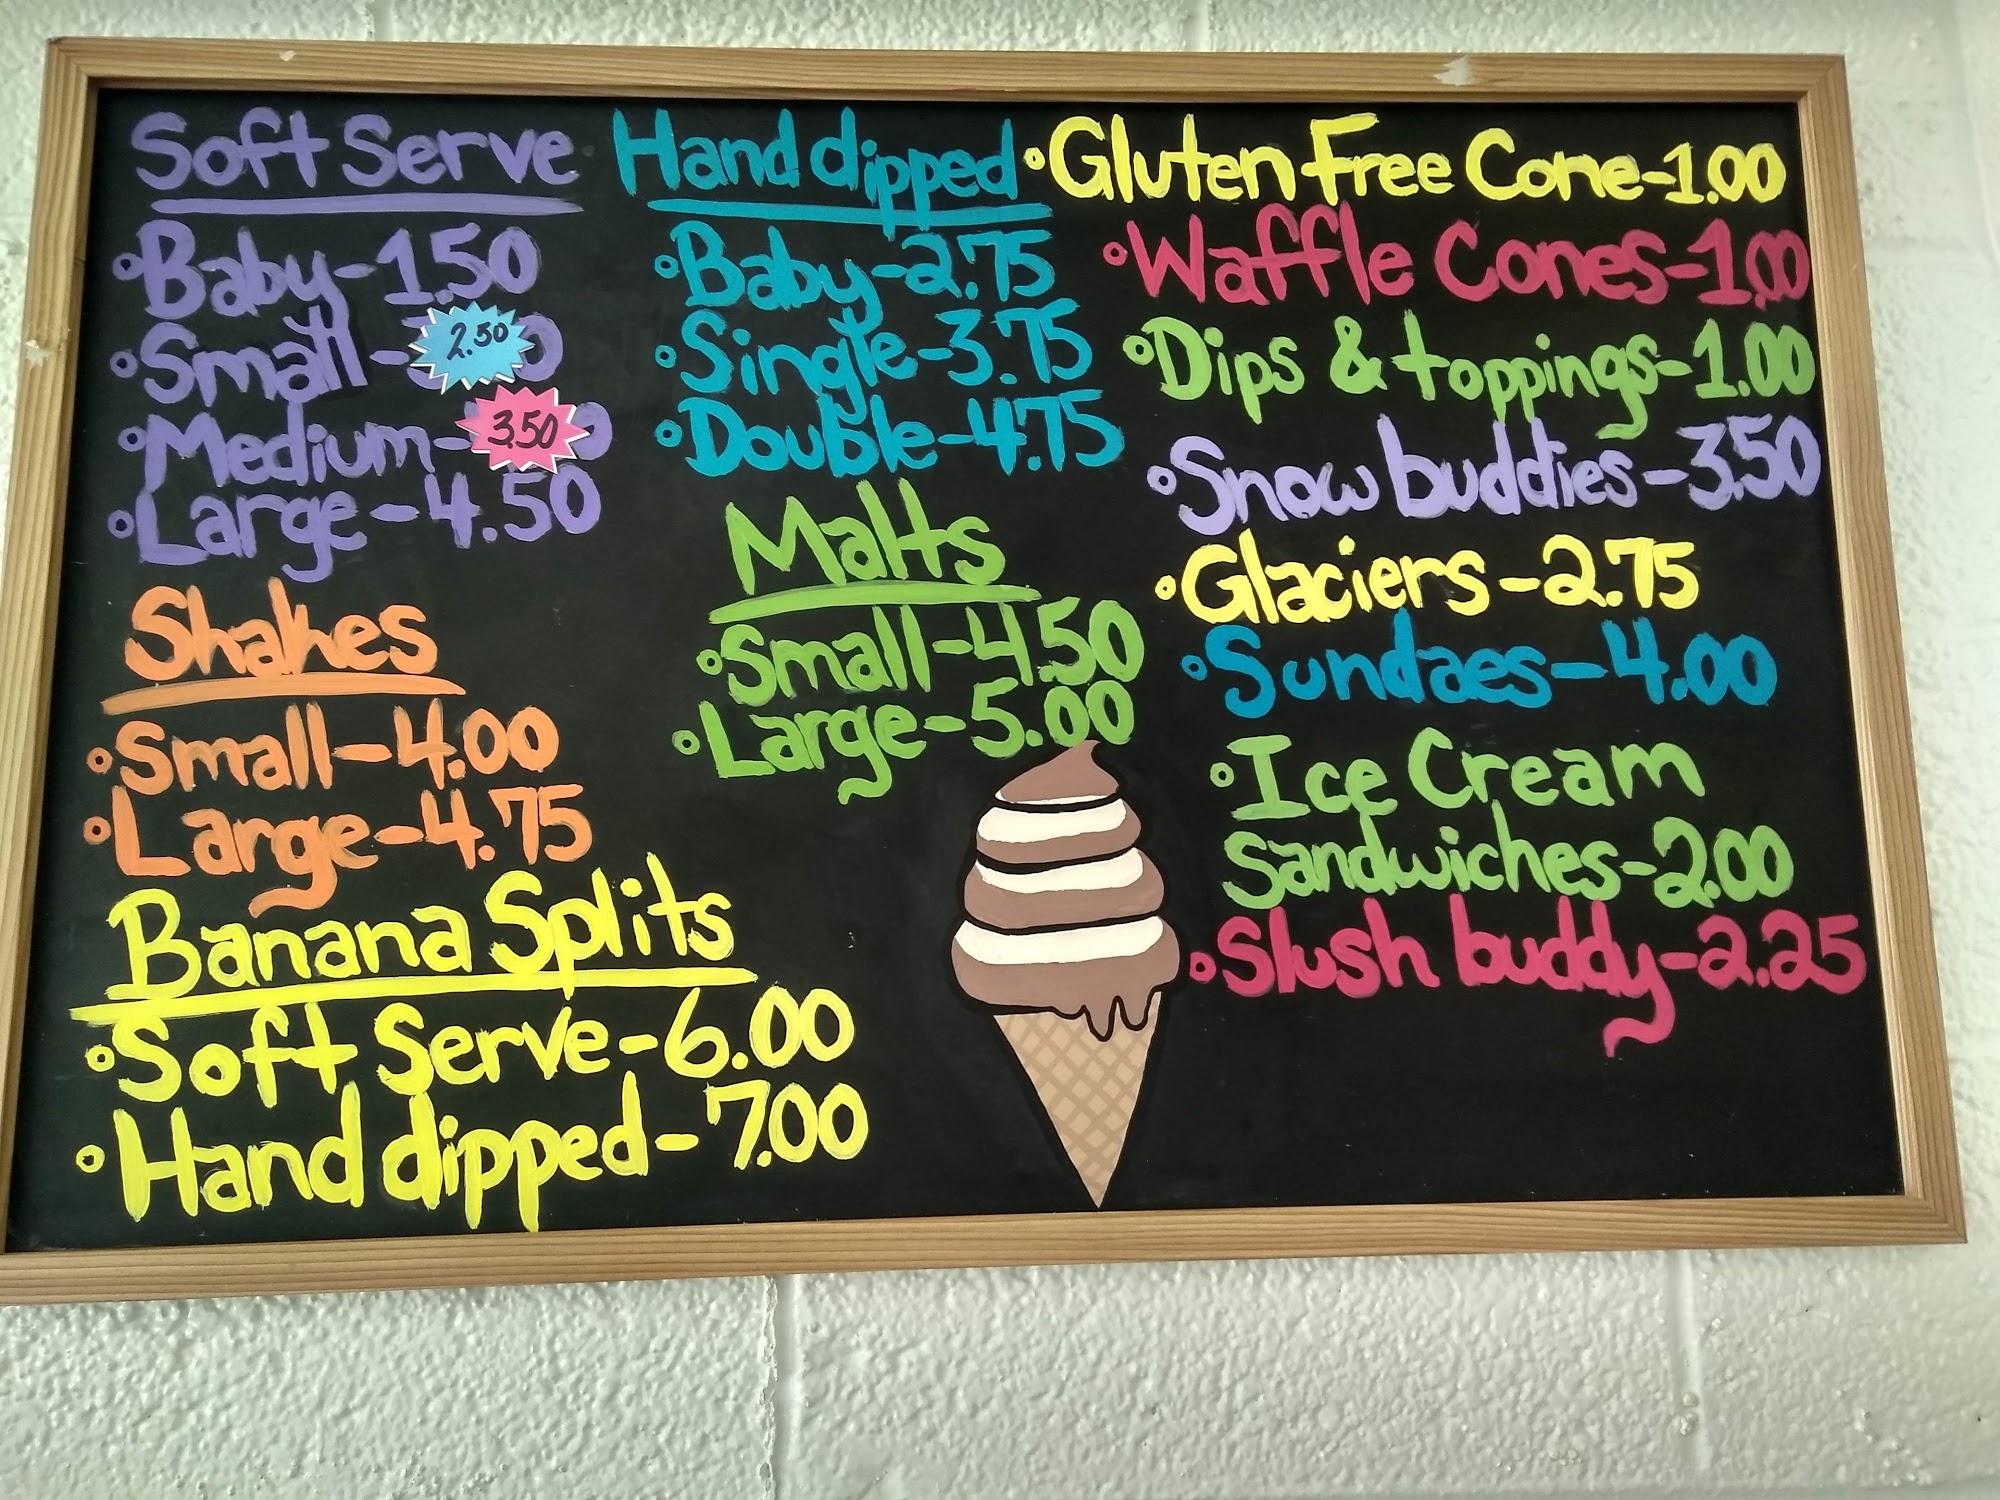 Soft Serve
•Baby-1.50
•Small-2.50
•Medium-3.50
•Large-4.50
Shakes
•Small-4.00
•Large-4.75
Banana Splits
•Soft Serve-6.00
•Hand dipped-7.00
Hand dipped
•Baby-2.75
•Single-3.75
•Double-4.75
Malts
•Small-4.50
•Large-5.00
•Gluten Free Cone-1.00
•Waffle Cones-1.00
•Dips & toppings-1.00
•Snow buddies-3.50
•Glaciers-2.75
•Sundaes-4.00
•Ice Cream
Sandwiches-2.00
•Slush buddy-2.25